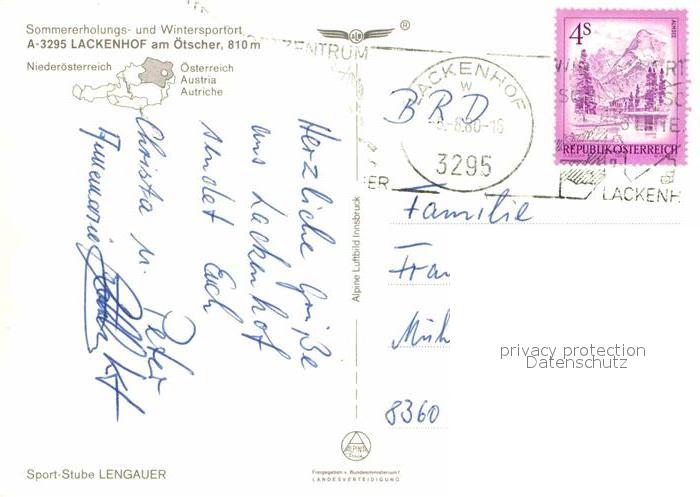 Sommererholungs- und Wintersportort
A-3295 LACKENHOF am Ötscher, 810 m
Niederösterreich
Österreich
Austria
Autriche
Herzliche Grüße
aus Lackenhof
sendet Euch
Peter
Christa u.
Annemarie
Alpine Luftbild Innsbruck
ZENTRUM
®
4S
ALMSEE
REPUBLIK ÖSTERREICH
LACKENHOF
w
-8.80-16
3295
ER
LACKENH
BRD
Familie
Fran
Müh
8360
privacy protection
Datenschutz
ALPINE
Freigegeben v. Bundesministerium f.
LANDESVERTEIDIGUNG
Sport-Stube LENGAUER